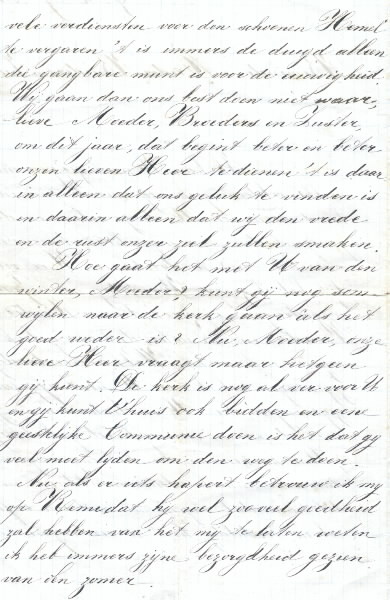 vele verdiensten voor den schoonen Hemel
te vergaren 't is immers de deugd alleen
die gangbare munt is voor de eeuwigheid.
Wij gaan dan ons best doen niet waar,
lieve Moeder, Broeders en Zuster,
om dit jaar, dat begint beter en beter
onzen lieven Heer te dienen 't is daar
in alleen dat ons geluk te vinden is
en daarin alleen dat wij den vrede
en de rust onzer ziel zullen smaken.
Hoe gaat het met U van den
winter, Moeder? kunt gij nog som
wijlen naar de kerk gaan als het
goed weder is? Nu Moeder, onze
lieve Heer vraagt maar hetgeen
gij kunt. De kerk is nog al ver voor U
en gij kunt t'huis ook bidden en eene
geestelijke Communie doen is het dat gij
veel moet lijden om den weg te doen.
Nu als er iets hapert betrouw ik mij
op Remi dat hij wel zooveel goedheid
zal hebben van het mij te laten weten
ik heb immers zijne bezorgdheid gezien
van den zomer.